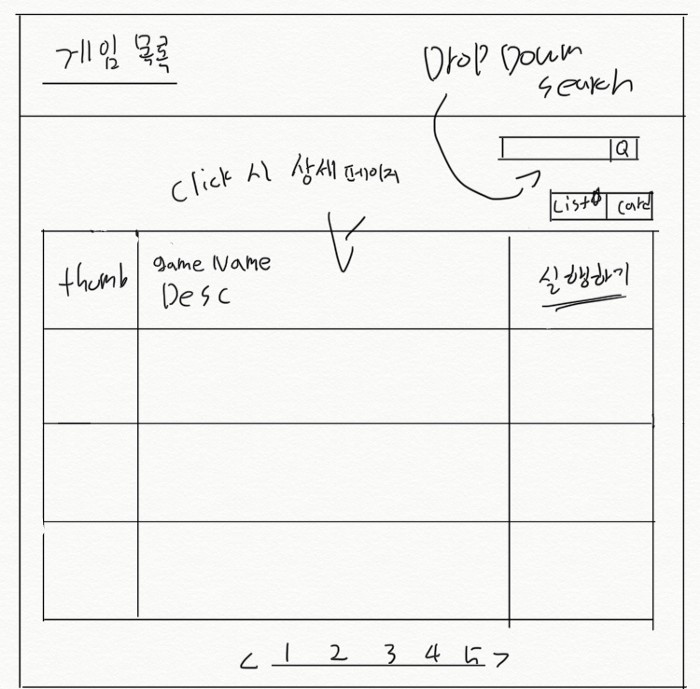 게임 목록
Drop Down
search
Q
Click 시 상세 페이지
List
Card
thumb
game Name
Desc
실행하기
< 1 2 3 4 5 >